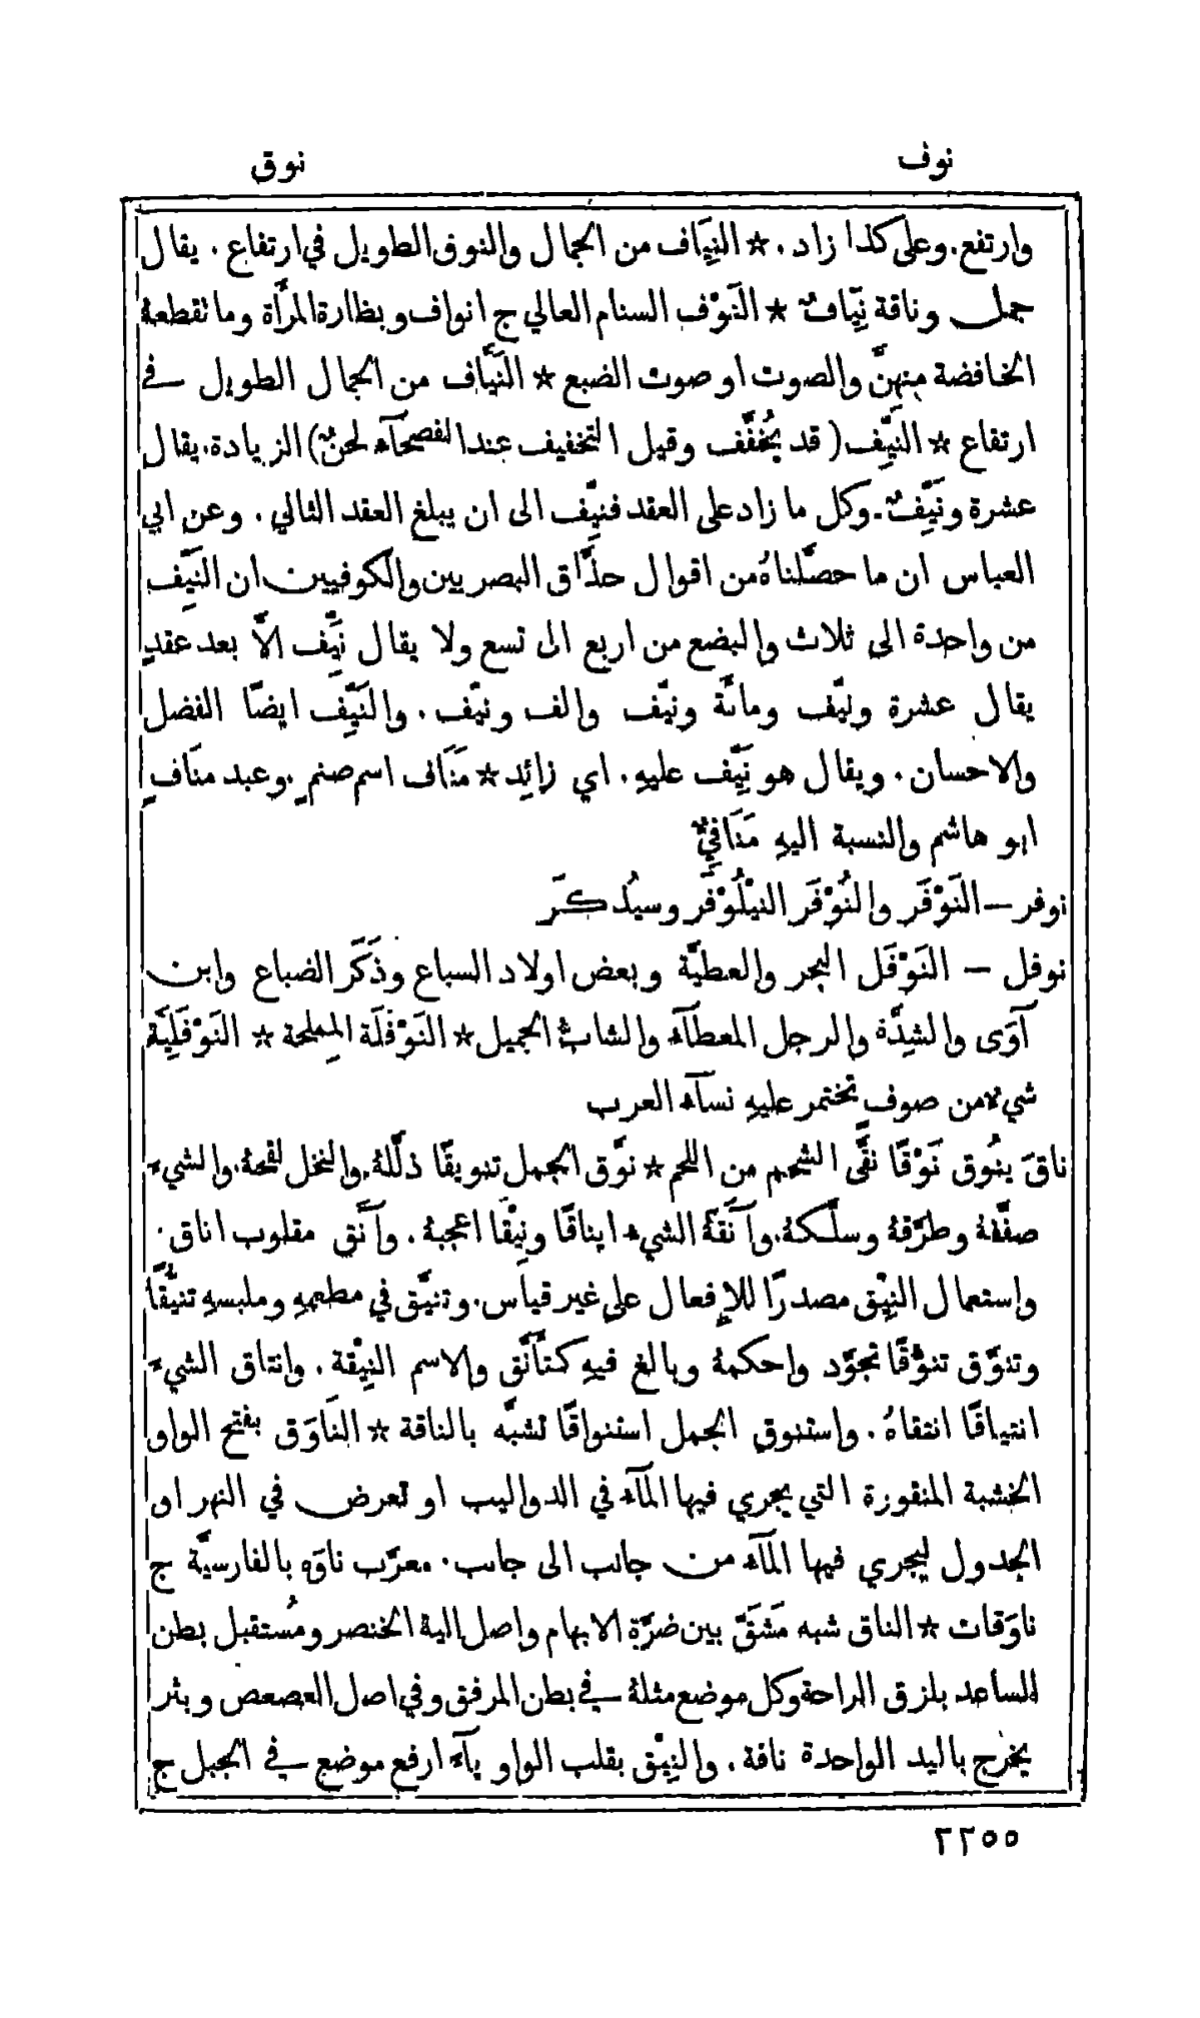 نوف
نوق
وارتفع. وعلى كذا زاد. * النِيَاف من الجمال والنوق الطويل في ارتفاع. يقال
جمل وناقة نِيَافٌ * النَوْف السنام العالي ج انواف وبظارة المرْأَة وما تقطعهُ
الخافضة منهنَّ والصوت او صوت الضبع * النَيَّاف من الجمال الطويل في
ارتفاع * النَيِّف (قد يُخفَّف وقيل التخفيف عند الفصحآء لحنٌ) الزيادة. يقال
عشرة ونَيِّفٌ. وكل ما زاد على العقد فنيِّف الى ان يبلغ العقد الثاني. وعن ابي
العباس ان ما حصَّلناهُ من اقوال حذَّاق البصريين والكوفيين ان النَيِّف
من واحدة الى ثلاث والبضع من اربع الى تسع ولا يقال نَيِّف الَّا بعد عقدٍ
يقال عشرة ونيّف ومائَة ونيّف والف ونيّف. والنَيِّف ايضًا الفضل
والاحسان. ويقال هو نَيِّف عليهِ. اي زائِد * مَنَاف اسم صنمٍ. وعبد منَافٍ
ابو هاشم والنسبة اليهِ مَنَافِيٌّ
نوفر — النَوْفَر والنُوْفَر النيْلُوْفَر وسيُذكَر
نوفل — النَوْفَل البحر والعطيَّة وبعض اولاد السباع وذَكَر الضباع وابن
آوَى والشِدَّة والرجل المعطآء والشابُّ الجميل * النَوْفَلَة المِملحة * النَوْفَلِيَّة
شيءٌ من صوفٍ تختمر عليهِ نسآء العرب
ناقَ ينُوق نَوْقًا نقَّى الشحم من اللحم * نوَّق الجمل تنويقًا ذلَّلهُ. والنخل لقحهُ. والشيءَ
صفَّفهُ وطرَّقهُ وسلَّكهُ. وآنَقَهُ الشيء ايناقًا ونِيْقًا اعجبهُ. وآنَق مقلوب اناق.
واستعمال النِيْق مصدرًا للإِفعال على غير قياس. وتنيَّق في مطعمهِ وملبسهِ تنيُّقًا
وتنوَّق تنوُّقًا تجوَّد واحكمهُ وبالغ فيهِ كتأَنَّق والاسم النِيْقة. وانتاق الشيءَ
انتياقًا انتقاهُ. واستنوق الجمل استنواقًا تشبَّه بالناقة * النَاوَق بفتح الواو
الخشبة المنقورة التي يجري فيها المآء في الدواليب او تعرض في النهر او
الجدول ليجري فيها المآء من جانب الى جانب. معرَّب ناوَه بالفارسيَّة ج
ناوَقات * الناق شبه مَشَقٍّ بين ضرَّة الابهام واصل الية الخنصر ومُستقبل بطن
الساعد بلزق الراحة وكل موضع مثلهُ في بطن المرفق وفي اصل العصعص وبثر
يخرج باليد الواحدة ناقة. والنِيْق بقلب الواو يآء ارفع موضع في الجبل ج
٢٢٥٥